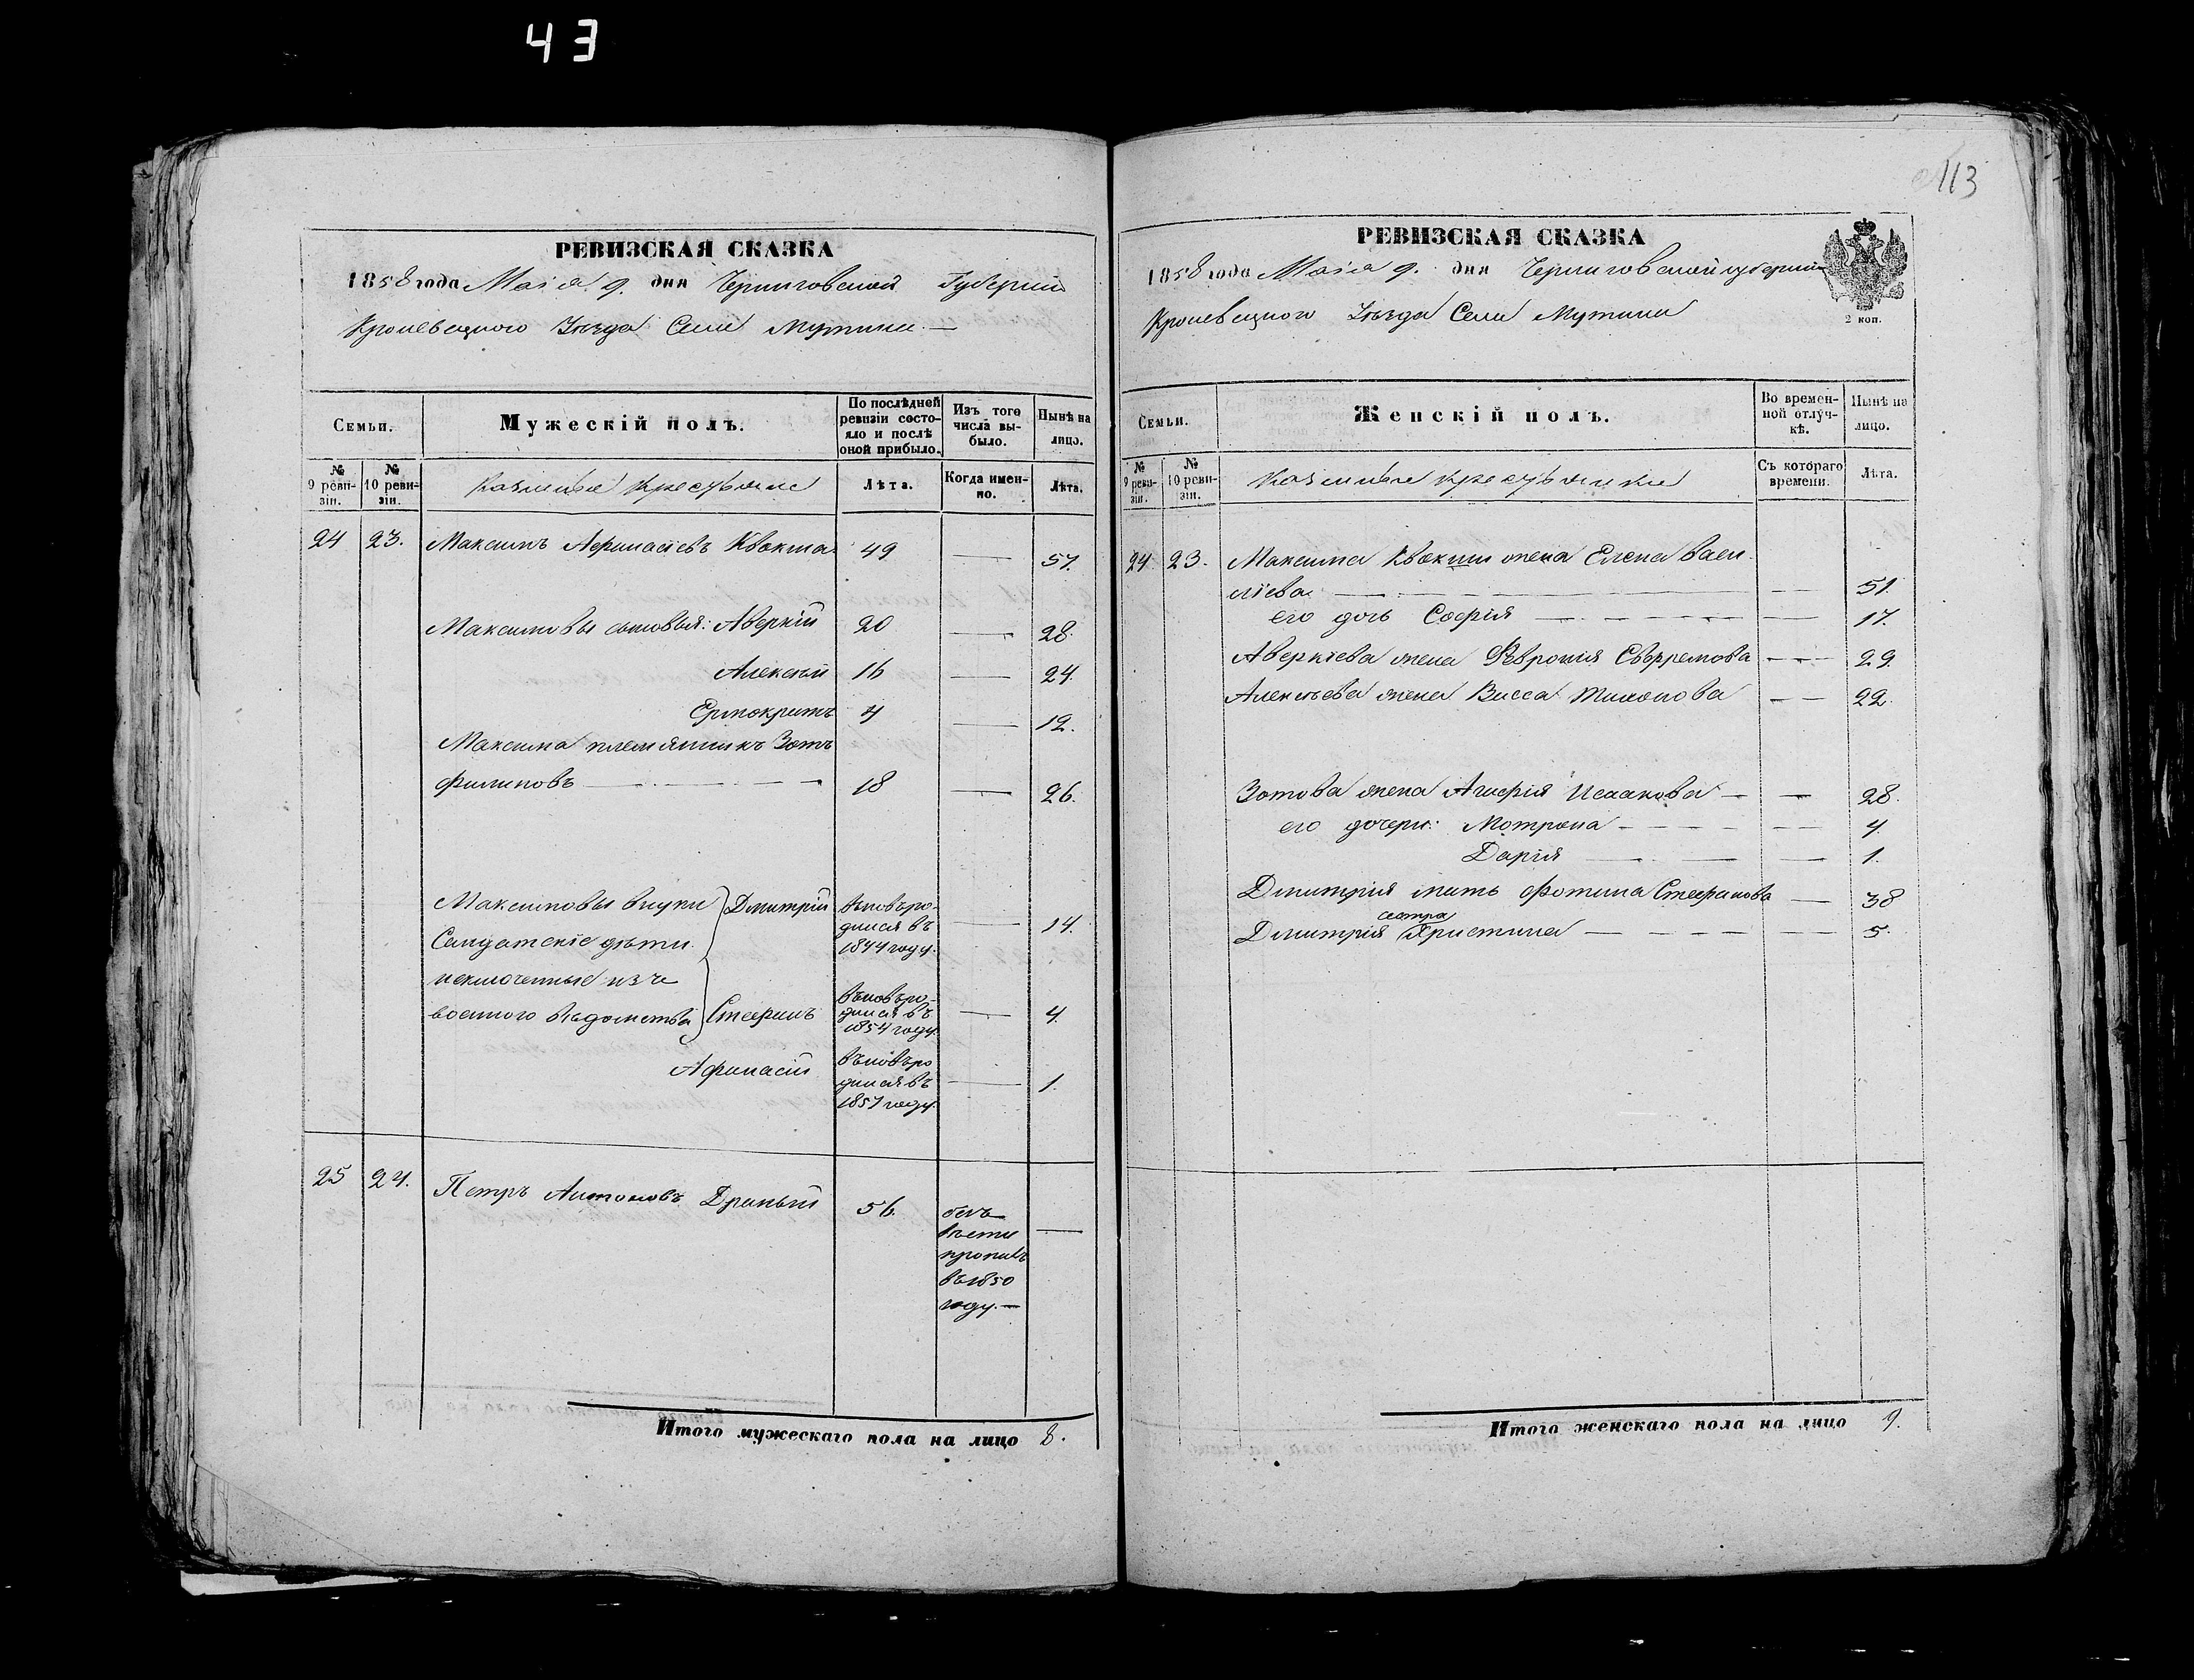 43
РЕВИЗСКАЯ СКАЗКА
1858 года Маія 9. дня Черниговской Губерніи
Кролевецкого Уезда Села Мутина
Семьи.
Мужескій полъ.
По последней ревизіи состояло и после оной прибыло.
Изъ того числа выбыло.
Ныне на лицо.
№ 9 ревизіи.
№ 10 ревизіи.
Казенные Крестьяне
Лѣта.
Когда именно.
Лѣта.
24 23. Максимъ Афанасіевъ Квокша 49 — 57.
Максимовы сыновья: Аверкій 20 — 28.
Алексѣй 16 — 24.
Ермократъ 4 — 12.
Максима племянникъ Зотъ
Филиповъ — 18 — 26.
Максимовы внуки Дмитрій вновь родился въ 1844 году. — 14.
Солдатскіе дѣти
исключенные изъ
военного вѣдомства Стефанъ вновь родился въ 1854 году. — 4.
Афанасій вновь родился въ 1857 году. — 1.
25 24. Петръ Антоновъ Драный 56. безъ вѣсти пропалъ въ 1850 году. —
Итого мужескаго пола на лицо 8.
113
РЕВИЗСКАЯ СКАЗКА
1858 года Маія 9. дня Черниговской губерніи
Кролевецкого Уезда Села Мутина
2 коп.
Семьи.
Женскій полъ.
Во временной отлучкѣ.
Нынѣ на лицо.
№ 9 ревизіи.
№ 10 ревизіи.
Казенные крестьянки
Съ котораго времени.
Лѣта.
24 23. Максима Квокши жена Елена Васи
ліева — — 51.
его дочь Софія — — 17.
Аверкіева жена Февронія Ефремова — 29
Алексѣева жена Васса Тихонова — 22.
Зотова жена Агафія Исаакова — — 28.
его дочери: Мотрона — — 4.
Дарія — — 1.
Дмитрія мать Фотина Стефанова — 38
сестра
Дмитрія Христина — — 5.
Итого женскаго пола на лицо 9.